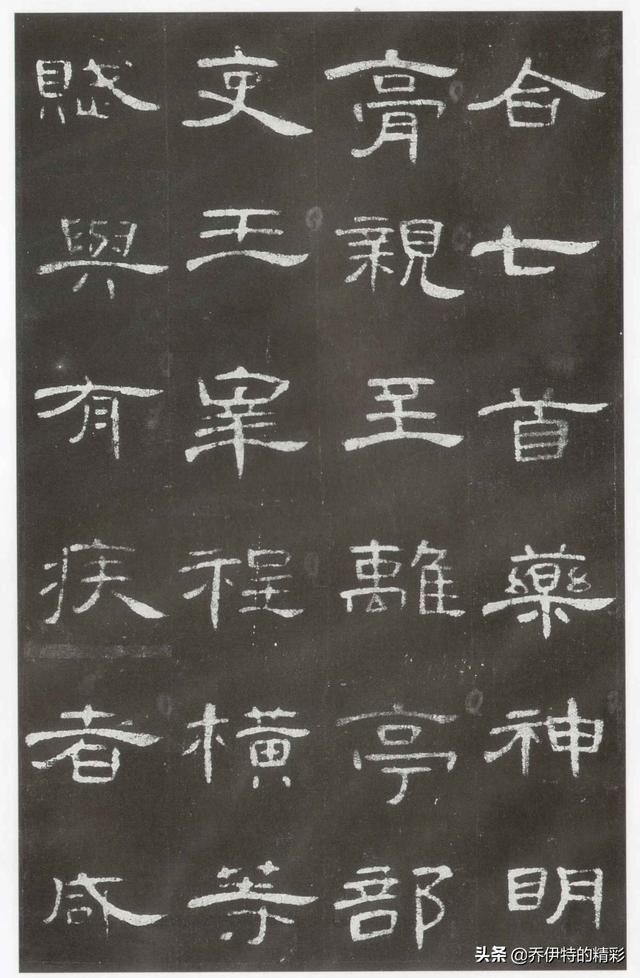 合七首藥神明
膏親至離亭部
吏王睾程橫等
賦與有疾者咸
头条 @乔伊特的精彩